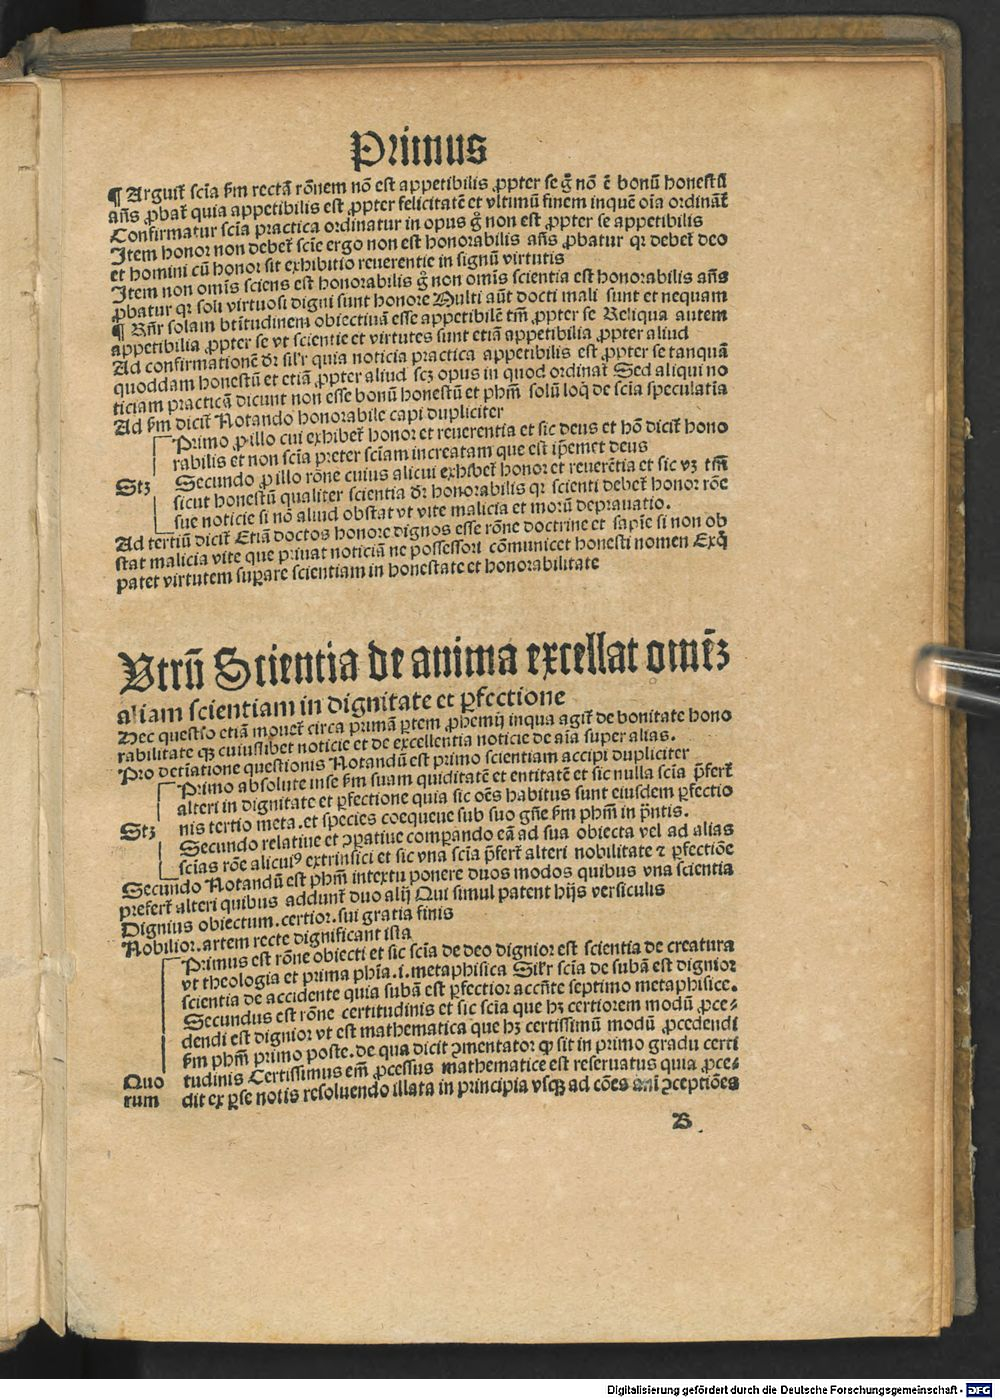 Primus
¶ Arguit᷑ scīa ẜm rectā rōnem nō est appetibilis ꝓpter se g̊ nō ē bonū honestū
añs ꝓbat᷑ quia appetibilis est ꝓpter felicitatē et vltimū finem inquē oīa ordināt᷑
Confirmatur scīa practica ordinatur in opus g̊ non est ꝓpter se appetibilis
Item honor non debet᷑ scīe ergo non est honorabilis añs ꝓbatur qꝛ debet᷑ deo
et homini cū honor sit exhibitio reuerentie in signū virtutis
Item non omīs sciens est honorabilis g̊ non omīs scientia est honorabilis añs
ꝓbatur qꝛ soli virtuosi digni sunt honore Multi aūt docti mali sunt et nequam
¶ Rñr solam btītudinem obiectiuā esse appetibilē tm̄ ꝓpter se Reliqua autem
appetibilia ꝓpter se vt scientie et virtutes sunt etiā appetibilia ꝓpter aliud
Ad confirmationē dr̄ sil'r quia noticia practica appetibilis est ꝓpter se tanquā
quoddam honestū et etiā ꝓpter aliud scꝫ opus in quod ordinat᷑ Sed aliqui no
ticiam practicā dicunt non esse bonū honestū et phm̄ solū loq̄ de scīa speculatīa
Ad p̄m dicit᷑ Notando honorabile capi dupliciter
Primo ꝓ illo cui exhibet᷑ honor et reuerentia et sic deus et hō dicit᷑ hono
rabilis et non scīa preter scīam increatam que est ip̄emet deus
Stꝫ
Secundo ꝓ illo rōne cuius alicui exhibet᷑ honor et reuerētia et sic vꝫ tm̄
sicut honestū qualiter scientia dr̄ honorabilis qꝛ scienti debet᷑ honor rōe
sue noticie si nō aliud obstat vt vite malicia et morū deprauatio.
Ad tertiū dicit᷑ Etiā doctos honore dignos esse rōne doctrine et sapīe si non ob
stat malicia vite que priuat noticiā ne possessori cōmunicet honesti nomen Exq̄
patet virtutem suꝑare scientiam in honestate et honorabilitate
Vtrū Scientia de anima excellat omēꝫ
aliam scientiam in dignitate et ꝑfectione
Hec questio etiā mouet᷑ circa primā ꝑtem ꝓhemij inqua agit᷑ de bonitate hono
rabilitate qꝫ cuiuslibet noticie et de excellentia noticie de aīa super alias.
Pro det̄iatione questionis Notandū est primo scientiam accipi dupliciter
Primo absolute inse ẜm suam quiditatē et entitatē et sic nulla scīa p̄fert᷑
alteri in dignitate et ꝑfectione quia sic oēs habitus sunt eiusdem ꝑfectio
Stꝫ
nis tertio meta. et species coequeue sub suo gn̄e ẜm phm̄ in p̄ntis.
Secundo relatiue et ꝯꝑatiue comꝑando eā ad sua obiecta vel ad alias
scīas rōe alicuiꝰ extrinsici et sic vna scīa p̄fert᷑ alteri nobilitate ⁊ ꝑfectiōe
Secundo Notandū est phm̄ intextu ponere duos modos quibus vna scientia
prefert᷑ alteri quibus addunt᷑ duo alij Qui simul patent hijs versiculis
Dignius obiectum. certior. sui gratia finis
Nobilior. artem recte dignificant ista
Primus est rōne obiecti et sic scīa de deo dignior est scientia de creatura
vt theologia et prima phīa .i. metaphisica Sil'r scīa de subā est dignior
scientia de accidente quia subā est ꝑfectior accn̄te septimo metaphisice.
Secundus est rōne certitudinis et sic scīa que hꝫ certiorem modū ꝓce-
dendi est dignior vt est mathematica que hꝫ certissimū modū ꝓcedendi
ẜm phm̄ primo poste. de qua dicit ꝯmentator ꝙ sit in primo gradu certi
Quo
rum
tudinis Certissimus em̄ ꝓcessus mathematice est reseruatus quia ꝓce-
dit ex ꝑse notis resoluendo illata in principia vsqꝫ ad cōes ani ꝯceptiōes
B
Digitalisierung gefördert durch die Deutsche Forschungsgemeinschaft - DFG